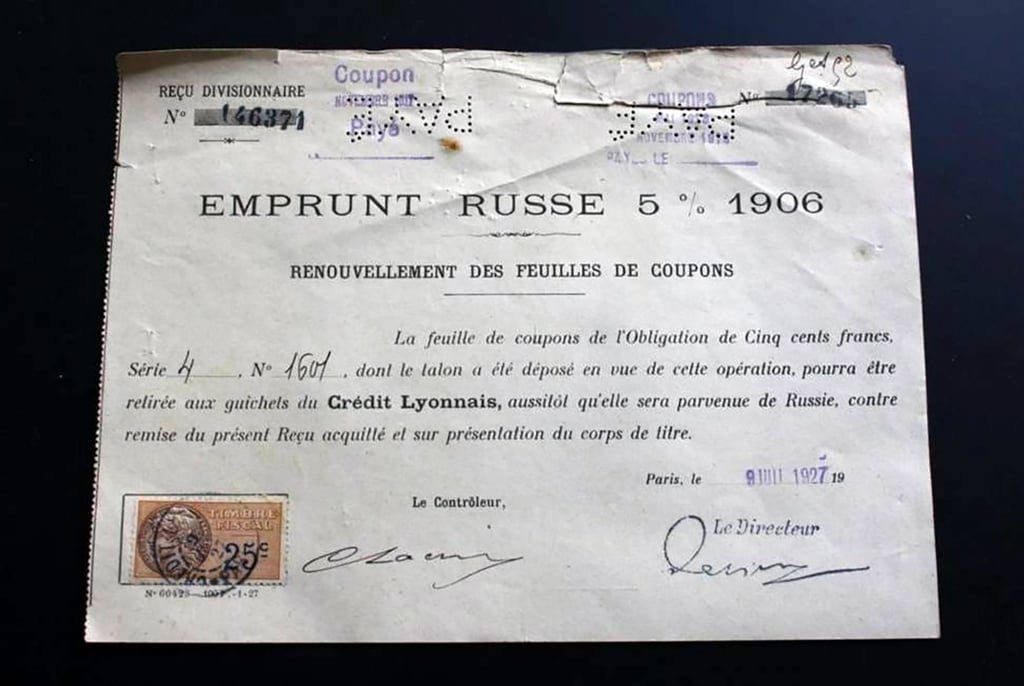 REÇU DIVISIONNAIRE
N° 146371
Coupon
NOVEMBRE 1917
Payé
PAYÉ
COUPONS
NOVEMBRE 1918
PAY
LE
PAYÉ
N° 17265
EMPRUNT RUSSE 5 % 1906
RENOUVELLEMENT DES FEUILLES DE COUPONS
La feuille de coupons de l'Obligation de Cinq cents francs,
Série 4, N° 1601, dont le talon a été déposé en vue de cette opération, pourra être
retirée aux guichets du Crédit Lyonnais, aussitôt qu'elle sera parvenue de Russie, contre
remise du présent Reçu acquitté et sur présentation du corps de titre.
Paris, le 9 JUIL 1927 19
Le Contrôleur,
Le Directeur
TIMBRE
FISCAL
25c